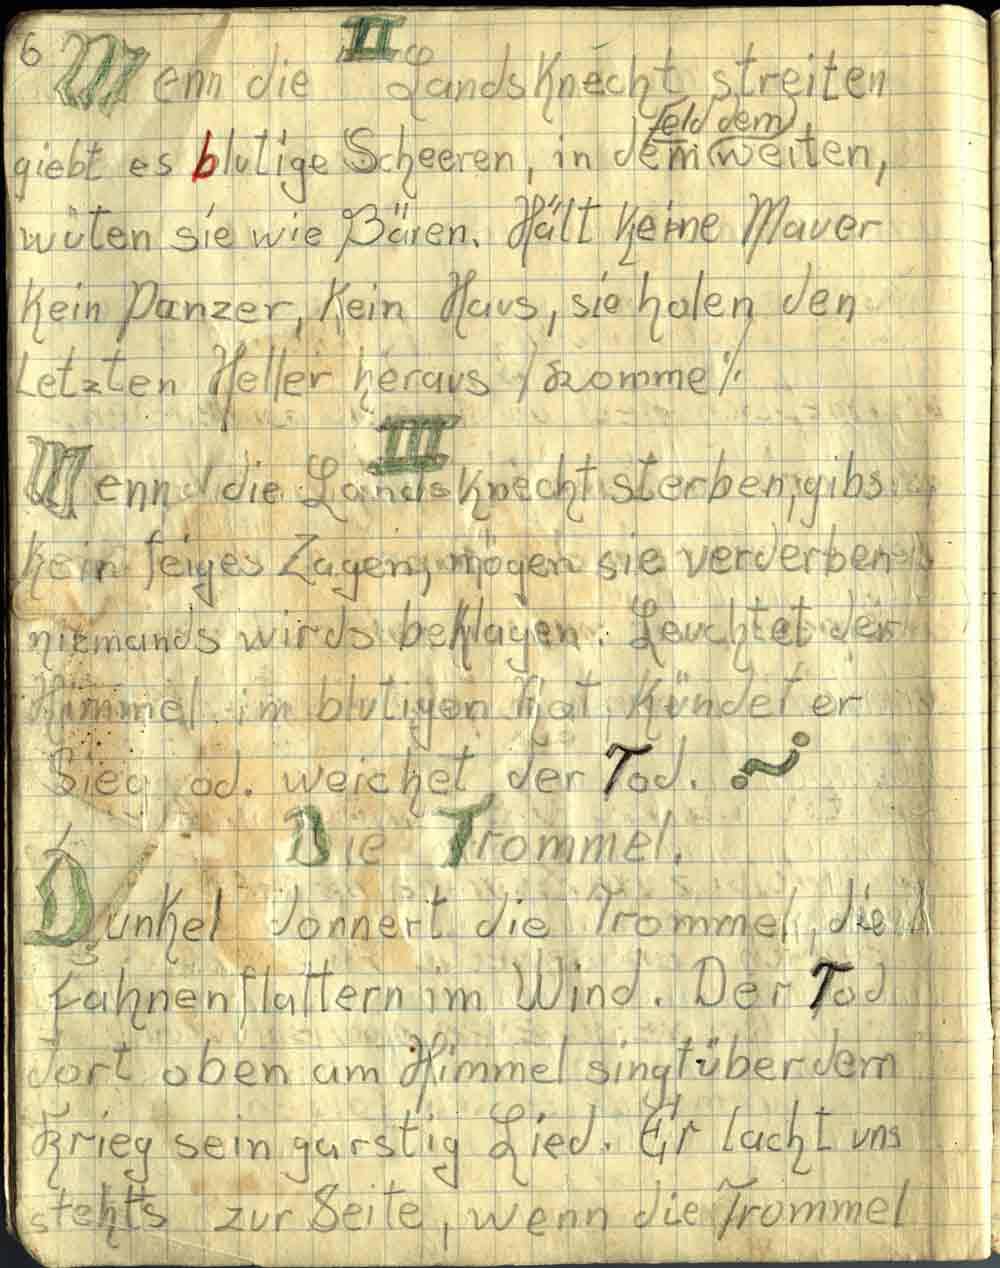 6
II
Wenn die Landsknecht streiten
feld dem
giebt es blutige Scheeren, in dem weiten,
wüten sie wie Bären. Hält keine Mauer
kein Panzer, kein Haus, sie holen den
Letzten Heller heraus /:Komme:/.
III
Wenn die Landsknecht sterben, gibs
kein feiges Zagen, mögen sie verderben
niemands wirds beklagen. Leuchtet der
Himmel im blutigen Rot, kündet er
Sieg od. weichet der Tod.
Die Trommel.
Dunkel donnert die Trommel, die
Fahnen flattern im Wind. Der Tod
dort oben am Himmel singt über dem
Krieg sein garstig Lied. Er lacht uns
stehts zur Seite, wenn die Trommel